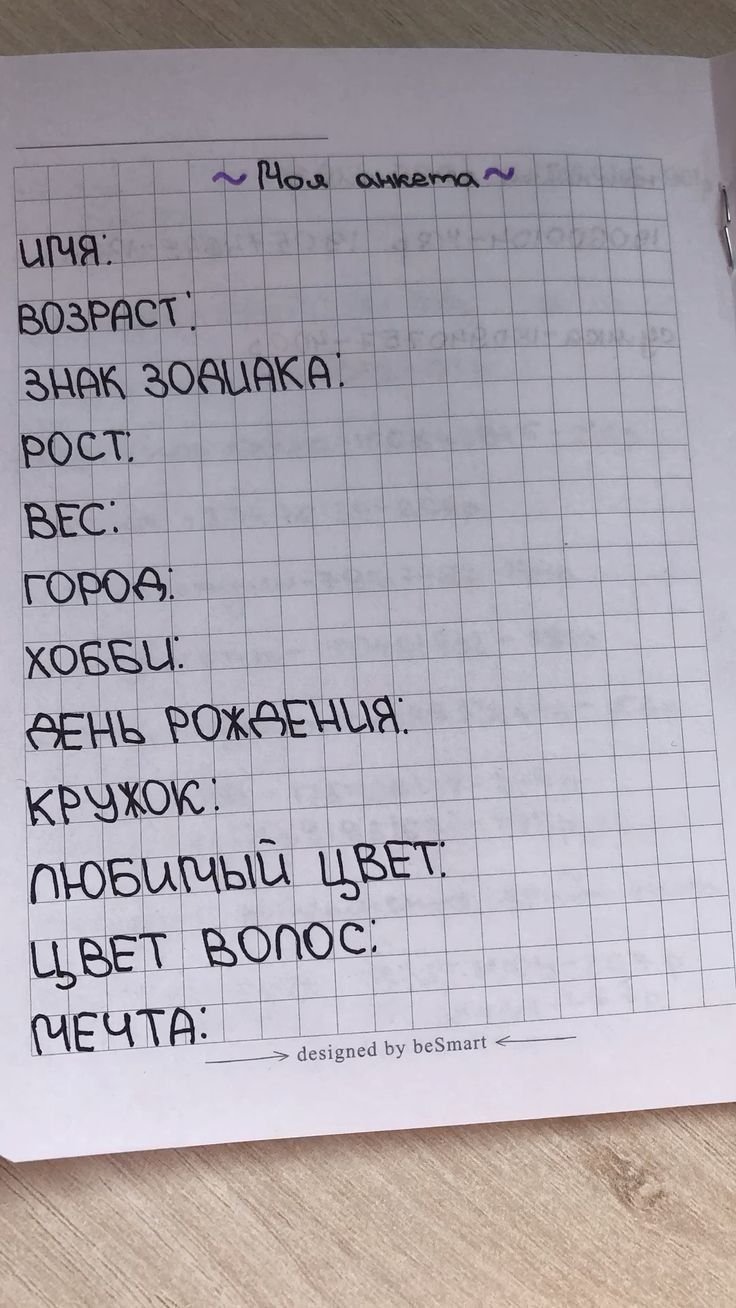 ~ Моя анкета ~
ИМЯ:
ВОЗРАСТ:
ЗНАК ЗОДИАКА:
РОСТ:
ВЕС:
ГОРОД:
ХОББИ:
ДЕНЬ РОЖДЕНИЯ:
КРУЖОК:
ЛЮБИМЫЙ ЦВЕТ:
ЦВЕТ ВОЛОС:
МЕЧТА:
designed by beSmart